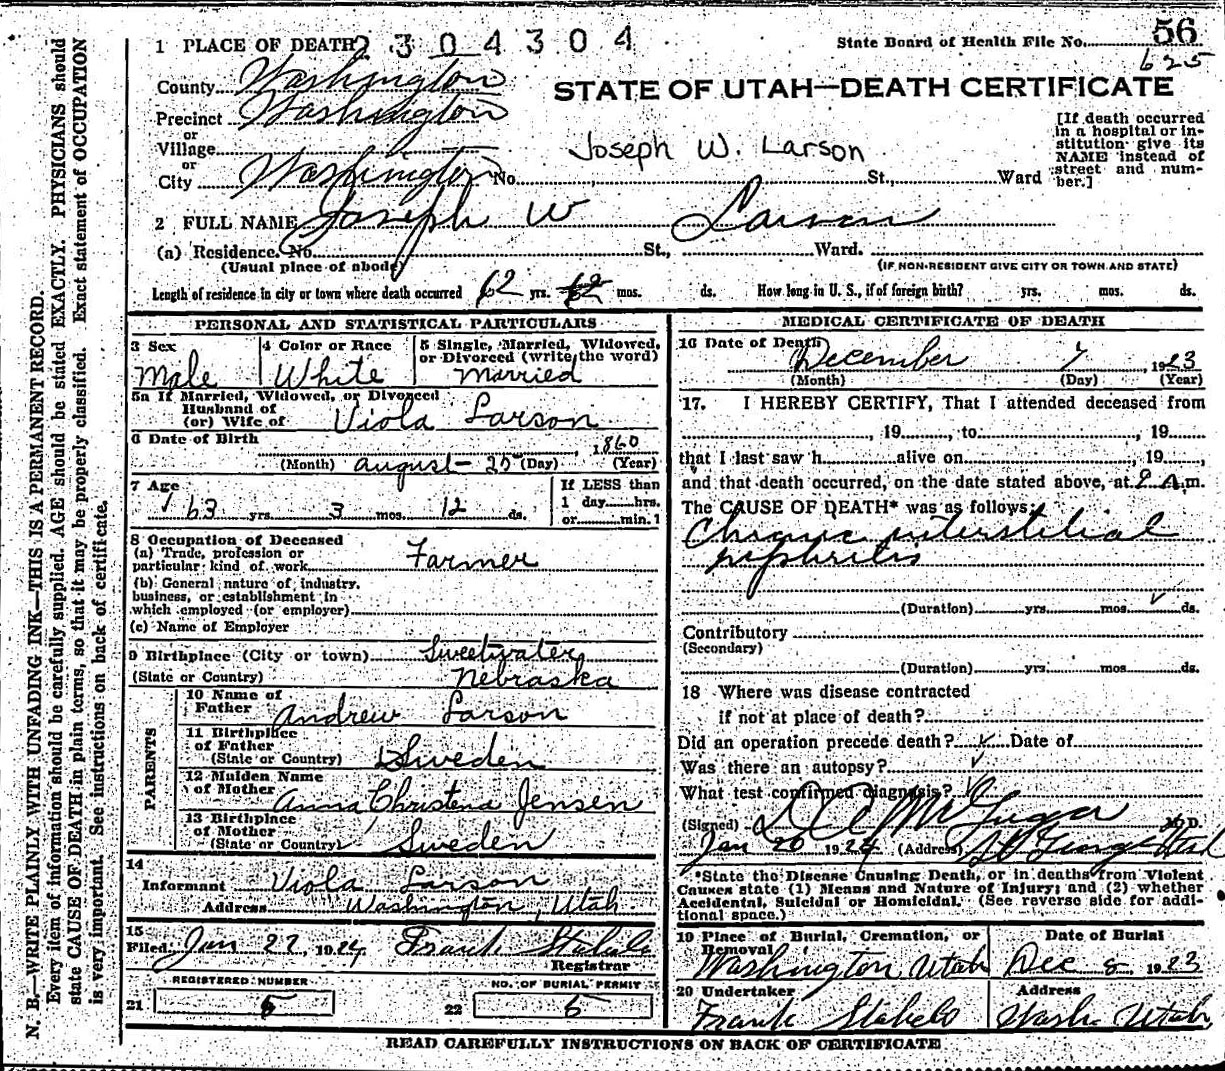 1 PLACE OF DEATH 2304304
State Board of Health File No. 56
625
County Washington
STATE OF UTAH—DEATH CERTIFICATE
Precinct Washington
or
Village
or
City Washington No. St., Ward
Joseph W. Larson
[If death occurred
in a hospital or in-
stitution give its
NAME instead of
street and num-
ber.]
2 FULL NAME Joseph W Larson
(a) Residence. No. St., Ward.
(Usual place of abode)
(IF NON-RESIDENT GIVE CITY OR TOWN AND STATE)
Length of residence in city or town where death occurred 62 yrs. mos. ds. How long in U. S., if of foreign birth? yrs. mos. ds.
PERSONAL AND STATISTICAL PARTICULARS
3 Sex
Male
4 Color or Race
White
5 Single, Married, Widowed,
or Divorced (write the word)
Married
5a If Married, Widowed, or Divorced
Husband of
(or) Wife of Viola Larson
6 Date of Birth
, 1860
(Month) August - 25 (Day) (Year)
7 Age
63 yrs. 3 mos. 12 ds.
If LESS than
1 day hrs.
or min. ?
8 Occupation of Deceased
(a) Trade, profession or
particular kind of work Farmer
(b) General nature of industry.
business, or establishment in
which employed (or employer)
(c) Name of Employer
9 Birthplace (City or town) Sweetwater
(State or Country) Nebraska
PARENTS
10 Name of
Father Andrew Larson
11 Birthplace
of Father
(State or Country) Sweden
12 Maiden Name
of Mother Anna Christena Jensen
13 Birthplace
of Mother
(State or Country) Sweden
14
Informant Viola Larson
Address Washington, Utah
15
Filed Jan 22, 1924 Frank
Registrar
REGISTERED NUMBER
21 5
NO. OF BURIAL PERMIT
22 5
MEDICAL CERTIFICATE OF DEATH
16 Date of Death
December 7, 1923
(Month) (Day) (Year)
17. I HEREBY CERTIFY, That I attended deceased from
, 19 , to , 19
that I last saw h alive on , 19 ,
and that death occurred, on the date stated above, at 9 A. m.
The CAUSE OF DEATH* was as follows:
Chronic interstitial
nephritis
(Duration) yrs. mos. ds.
Contributory
(Secondary)
(Duration) yrs. mos. ds.
18 Where was disease contracted
if not at place of death?
Did an operation precede death? Date of
Was there an autopsy?
What test confirmed diagnosis?
(Signed) M.D.
Jan 20 1924 (Address) St George Utah
*State the Disease Causing Death, or in deaths from Violent
Causes state (1) Means and Nature of Injury; and (2) whether
Accidental, Suicidal or Homicidal. (See reverse side for addi-
tional space.)
19 Place of Burial, Cremation, or
Removal
Washington Utah
Date of Burial
Dec 8, 1923
20 Undertaker
Frank
Address
Wash. Utah
READ CAREFULLY INSTRUCTIONS ON BACK OF CERTIFICATE
N. B.—WRITE PLAINLY WITH UNFADING INK—THIS IS A PERMANENT RECORD.
Every item of information should be carefully supplied. AGE should be stated EXACTLY. PHYSICIANS should
state CAUSE OF DEATH in plain terms, so that it may be properly classified. Exact statement of OCCUPATION
is very important. See instructions on back of certificate.